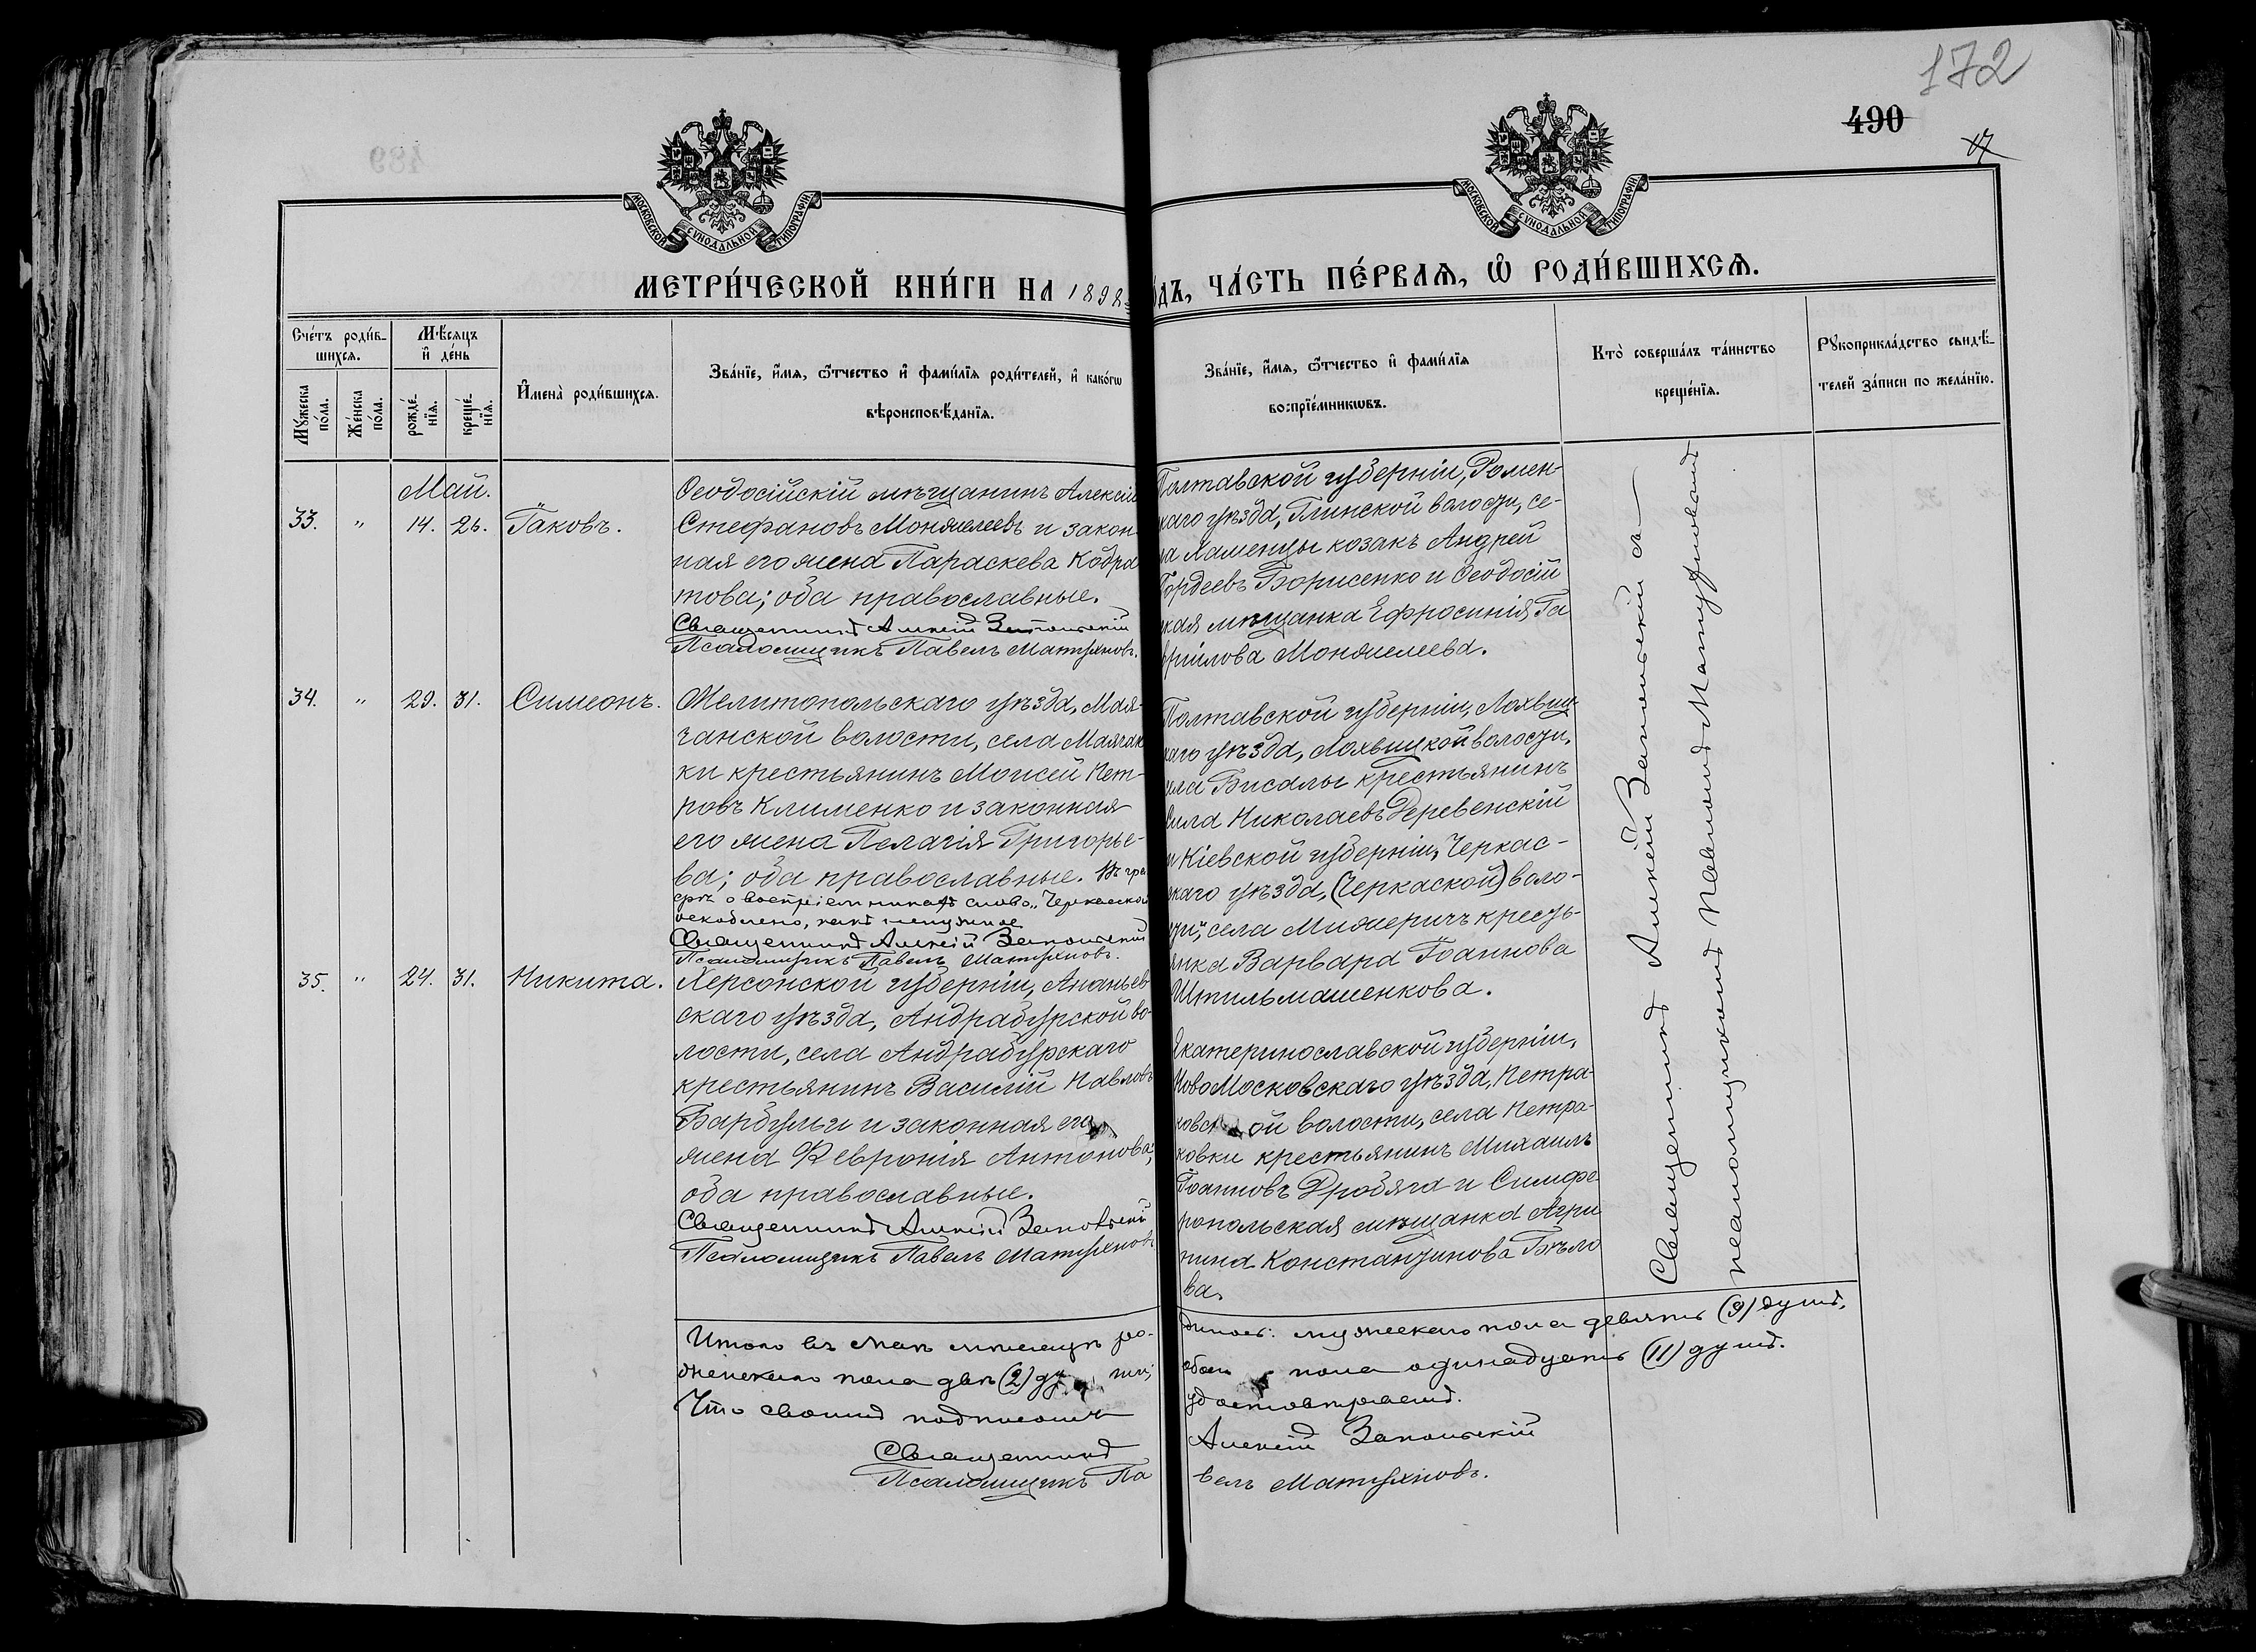 172
490
17
МОСКОВСКОЙ СѴНОДАЛЬНОЙ ТИПОГРАФІИ
МОСКОВСКОЙ СѴНОДАЛЬНОЙ ТИПОГРАФІИ
МЕТРИ́ЧЕСКОЙ КНИ́ГИ НА 1898
ДЪ, ЧА́СТЬ ПЕ́РВАѦ, Ѡ РОДИ́ВШИХСѦ.
Сче́тъ роди́в-
шихсѧ.
Мꙋ́жеска
по́ла.
Же́нска
по́ла.
Мѣ́сѧцъ
и҆ де́нь
рожде́-
нїѧ.
креще́-
нїѧ.
И҆мена̀ роди́вшихсѧ.
Зва́нїе, и҆́мѧ, ѻ҆́тчество и҆ фами́лїѧ роди́телей, и҆ како́гѡ
вѣроисповѣ́данїѧ.
Зва́нїе, и҆́мѧ, ѻ҆́тчество и҆ фами́лїѧ
воспрїе́мникѡвъ.
Кто̀ соверша́лъ та́инство
креще́нїѧ.
Рꙋкоприкла́дство свидѣ́-
телей за́писи по жела́нїю.
Май.
33. " 14. 26. Іаковъ.
Ѳеодосійскій мѣщанинъ Алексій
Стефановъ Монжелеевъ и закон
ная его жена Параскева Кодра
това; оба православные.
Священникъ Алексій Запольскій
Псаломщикъ Павелъ Матухновъ.
Полтавской губерніи, Ромен-
скаго уѣзда, Глинской волости, се-
ла Хаменцы козакъ Андрей
Гордеевъ Борисенко и Ѳеодосій
ская мѣщанка Ефросинія Га
вріилова Монжелеева.
34. " 29. 31. Симеонъ.
Мелитопольскаго уѣзда, Мая-
чанской волости, села Маячк
ки крестьянинъ Моисей Пет-
ровъ Клименко и законная
его жена Пелагія Григорье-
ва; оба православные. Въ гра
фѣ о воспріемникахъ слово „Черкасской
оскоблено, какъ ненужное
Священникъ Алексій Запольскій
Псаломщикъ Павелъ Матухновъ.
Полтавской губерніи, Лохвиц-
каго уѣзда, Лохвицкой волости,
села Бисалы крестьянинъ
вила Николаевъ Деревенскій
и Кіевской губерніи, Черкас-
скаго уѣзда, (Черкаской) воло-
сти", села Мижеричъ кресть-
янка Варвара Іоаннова
Штильмашенкова.
35. " 24. 31. Никита.
Херсонской губерніи, Ананьев
скаго уѣзда, Андрабурской во-
лости, села Андрабурскаго
крестьянинъ Василій Павловъ
Барбулы и законная его
жена Февронія Антонова;
оба православные.
Священникъ Алексій Запольскій
Псаломщикъ Павелъ Матухновъ
Екатеринославской губерніи,
НовоМосковскаго уѣзда, Петра-
ковской волости, села Петра-
ковки крестьянинъ Михаилъ
Іоанновъ Дробяга и Симфе
ропольская мѣщанка Агри
пина Константинова Бѣло
ва.
Священникъ Алексій Запольскій съ
псаломщикомъ Павломъ Матухновымъ
Итого въ маѣ мѣсяцѣ ро-
дилось: мужескаго пола девять (9) душъ,
женскаго пола двѣ (2) ду ши;
обоего пола одинадцать (11) душъ.
Что своимъ подписомъ
удостовѣряемъ.
Священникъ
Алексій Запольскій
Псаломщикъ Па
велъ Матухновъ.